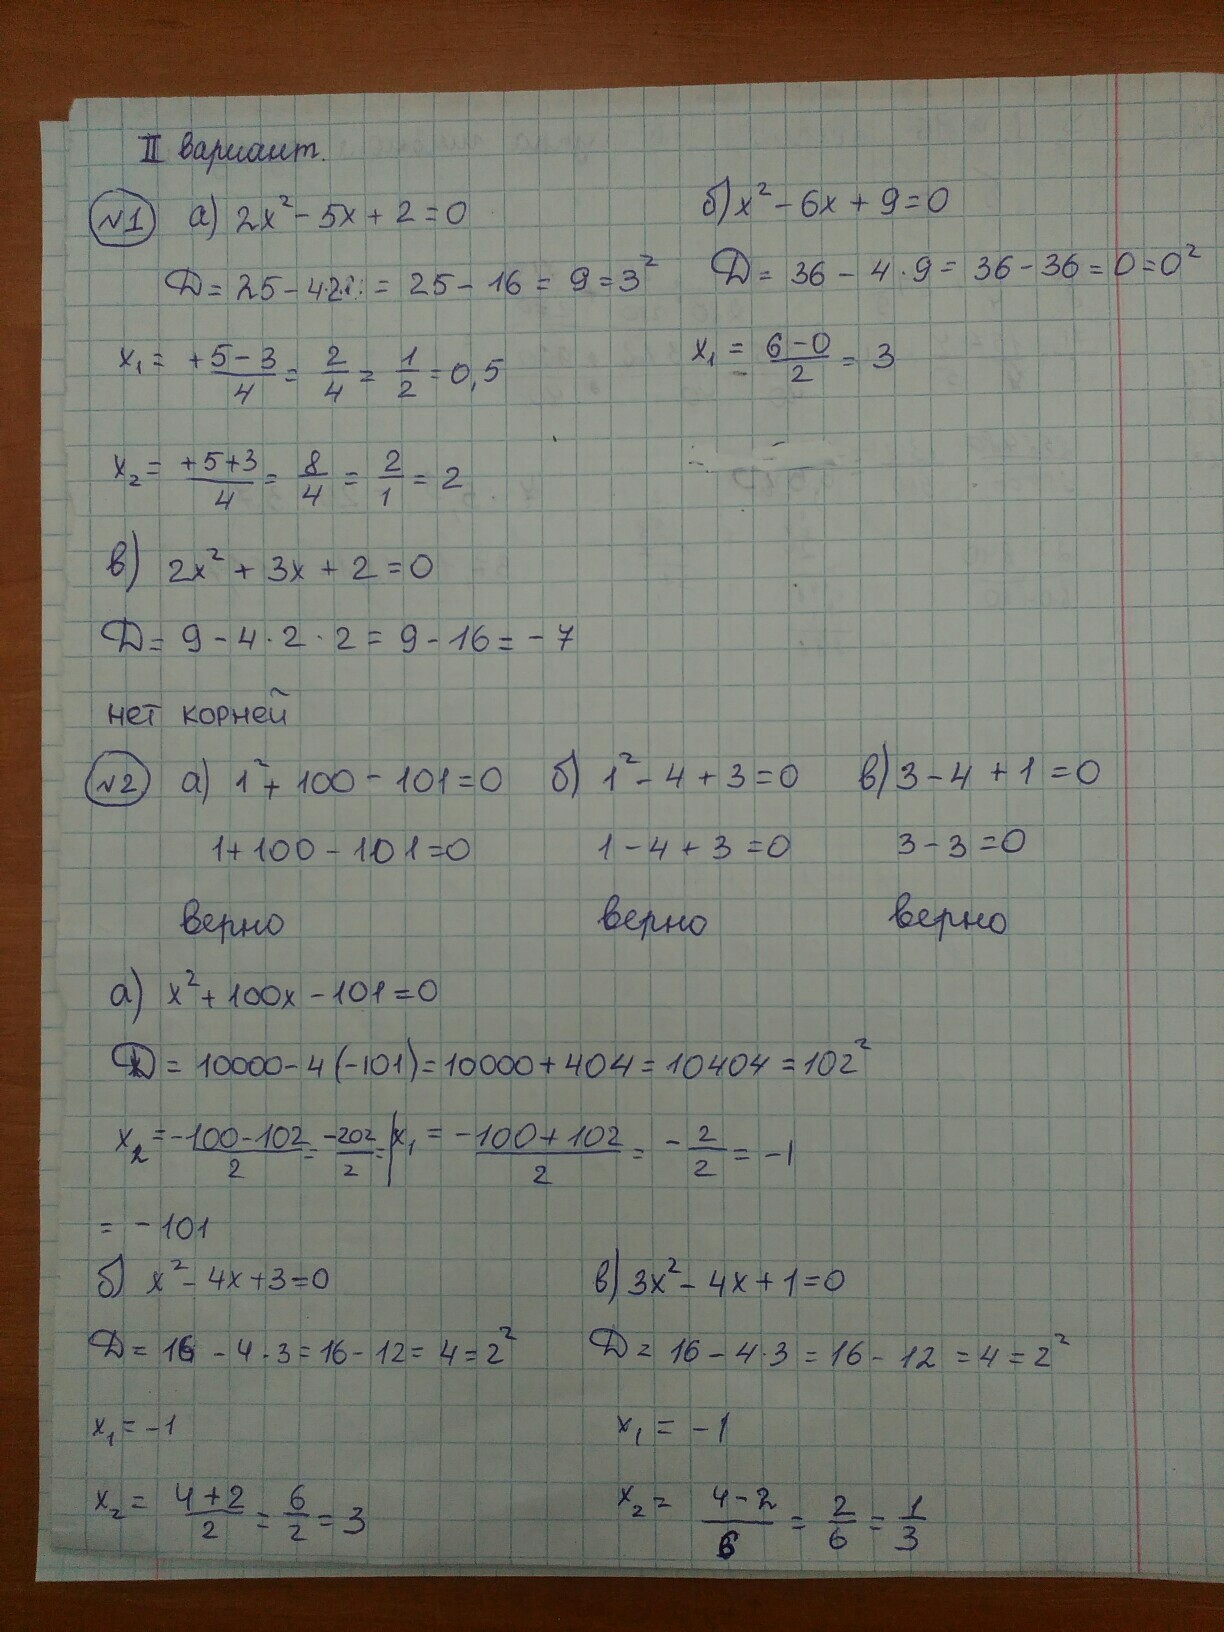 II вариант.
№1 а) 2x² - 5x + 2 = 0
Д = 25 - 4·2·2 = 25 - 16 = 9 = 3²
x₁ = +5-3/4 = 2/4 = 1/2 = 0,5
x₂ = +5+3/4 = 8/4 = 2/1 = 2
б) x² - 6x + 9 = 0
Д = 36 - 4·9 = 36 - 36 = 0 = 0²
x₁ = 6-0/2 = 3
в) 2x² + 3x + 2 = 0
Д = 9 - 4·2·2 = 9 - 16 = -7
нет корней
№2 а) 1² + 100 - 101 = 0
1 + 100 - 101 = 0
верно
б) 1² - 4 + 3 = 0
1 - 4 + 3 = 0
верно
в) 3 - 4 + 1 = 0
3 - 3 = 0
верно
а) x² + 100x - 101 = 0
Д = 10000 - 4(-101) = 10000 + 404 = 10404 = 102²
x₂ = -100-102/2 = -202/2 =
= -101
x₁ = -100+102/2 = -2/2 = -1
б) x² - 4x + 3 = 0
Д = 16 - 4·3 = 16 - 12 = 4 = 2²
x₁ = -1
x₂ = 4+2/2 = 6/2 = 3
в) 3x² - 4x + 1 = 0
Д = 16 - 4·3 = 16 - 12 = 4 = 2²
x₁ = -1
x₂ = 4-2/6 = 2/6 = 1/3